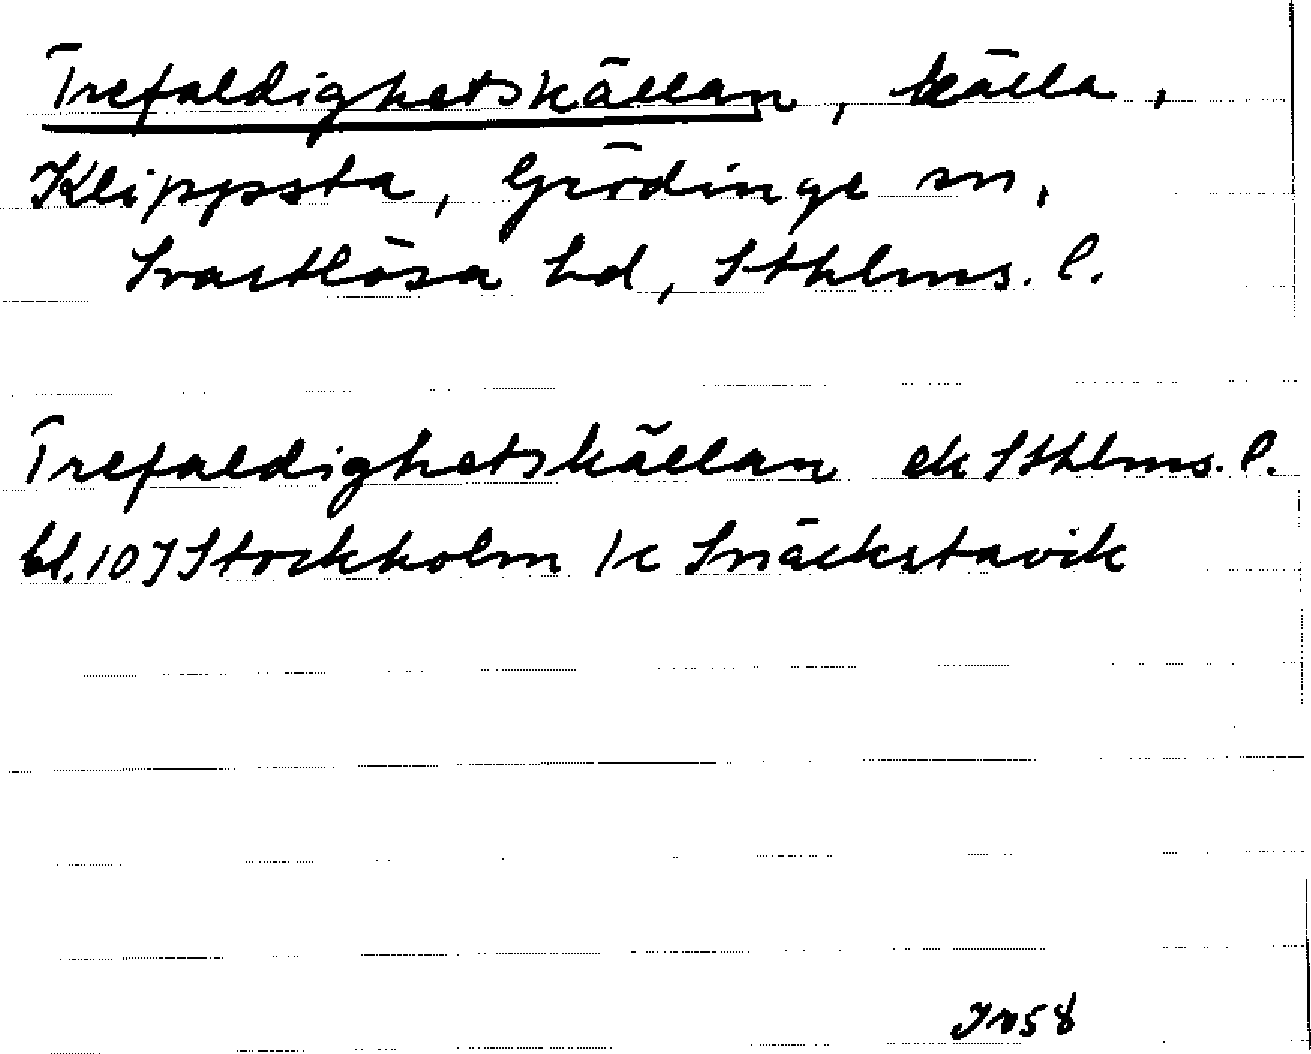 Trefaldighetskällan, källa,
Klippsta, Grödinge sn,
Svartlösa hd, Sthlms. l.
Trefaldighetskällan ek Sthlms. l.
bl. 10J Stockholm /c Snäckstavik